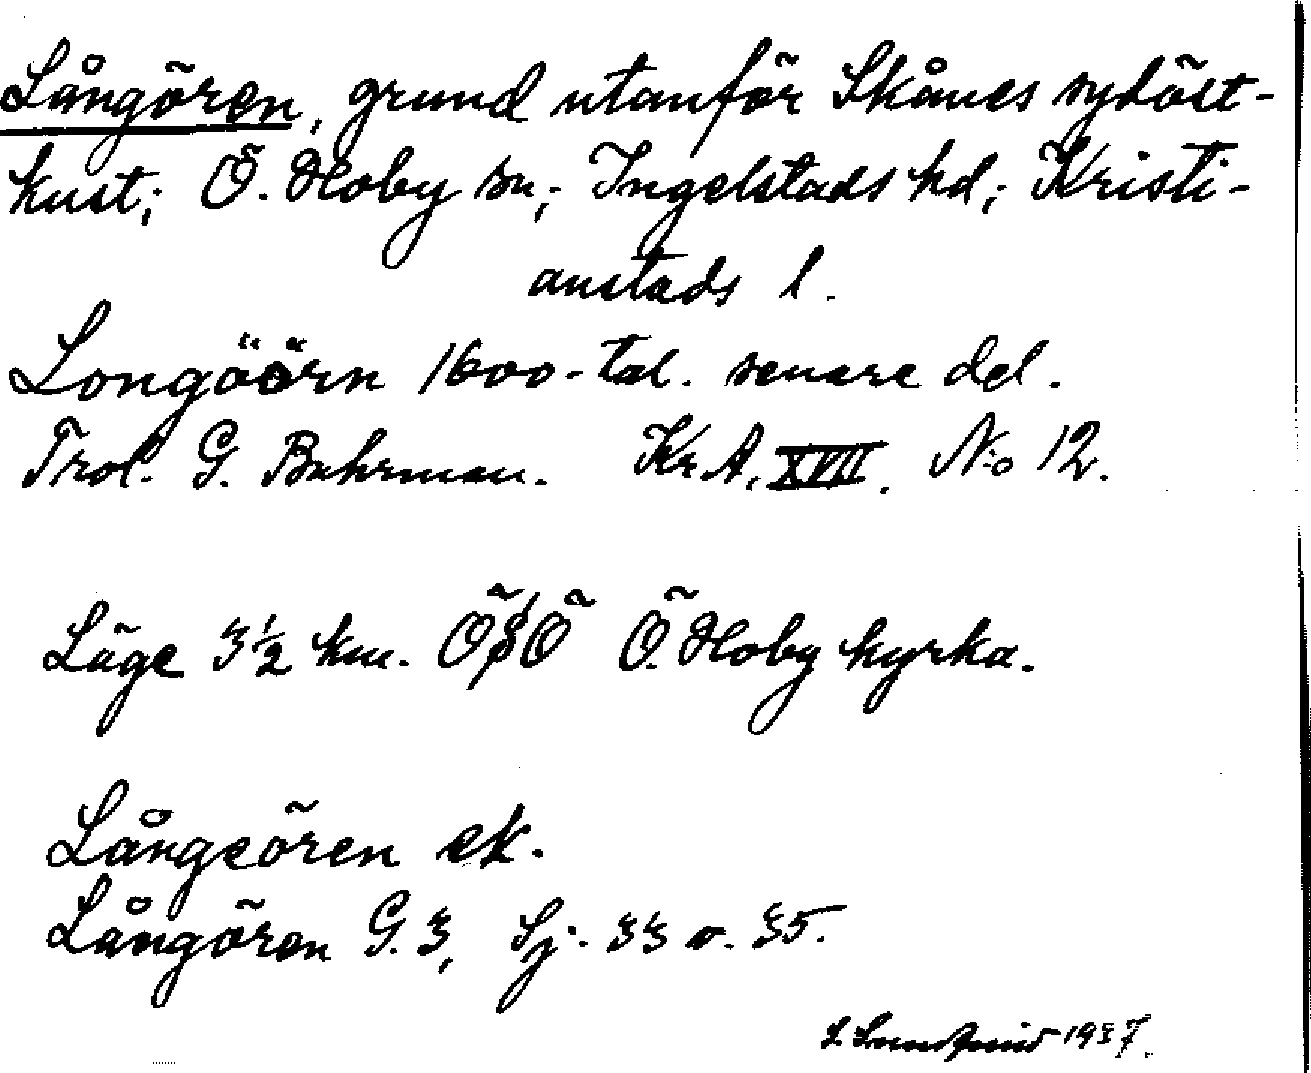 Långören, grund utanför Skånes sydöst-
kust; Ö. Hoby sn; Ingelstads hd; Kristi-
anstads l.
Longöörn 1600-tal. senare del.
Trol. G. Buhrman. Kr.A. XVII. No 12.
Läge 3½ km. ÖSÖ Ö. Hoby kyrka.
Långeören ek.
Långören G. 3, Sj. 33 o. 35.
1937.